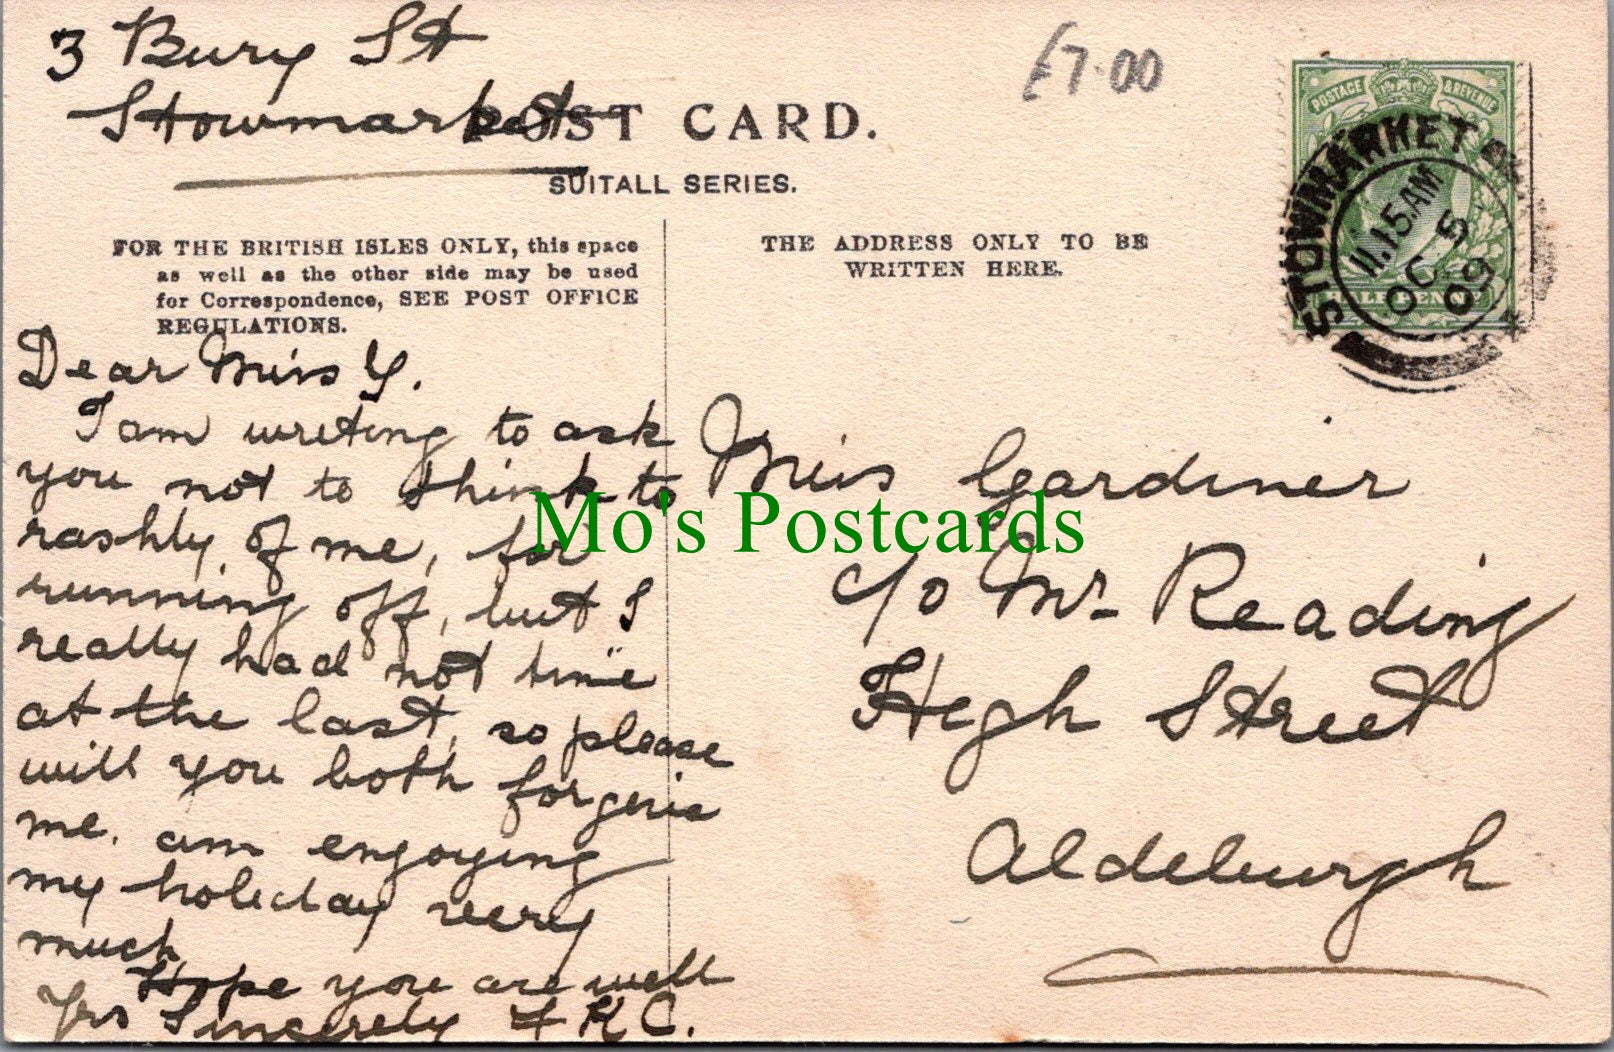 3 Bury St
Stowmarket
£7.00
POST CARD.
SUITALL SERIES.
POSTAGE & REVENUE
HALFPENNY
STOWMARKET
11.15 AM
OC 5
09
FOR THE BRITISH ISLES ONLY, this space
as well as the other side may be used
for Correspondence, SEE POST OFFICE
REGULATIONS.
THE ADDRESS ONLY TO BE
WRITTEN HERE.
Dear Miss G.
I am writing to ask
you not to think to
rashly of me, for
running off, but I
really had not time
at the last, so please
will you both forgive
me. am enjoying
my holiday very
much
Hope you are well
Yrs Sincerely K C.
Miss Gardiner
c/o Mr Reading
High Street
Aldeburgh
Mo's Postcards